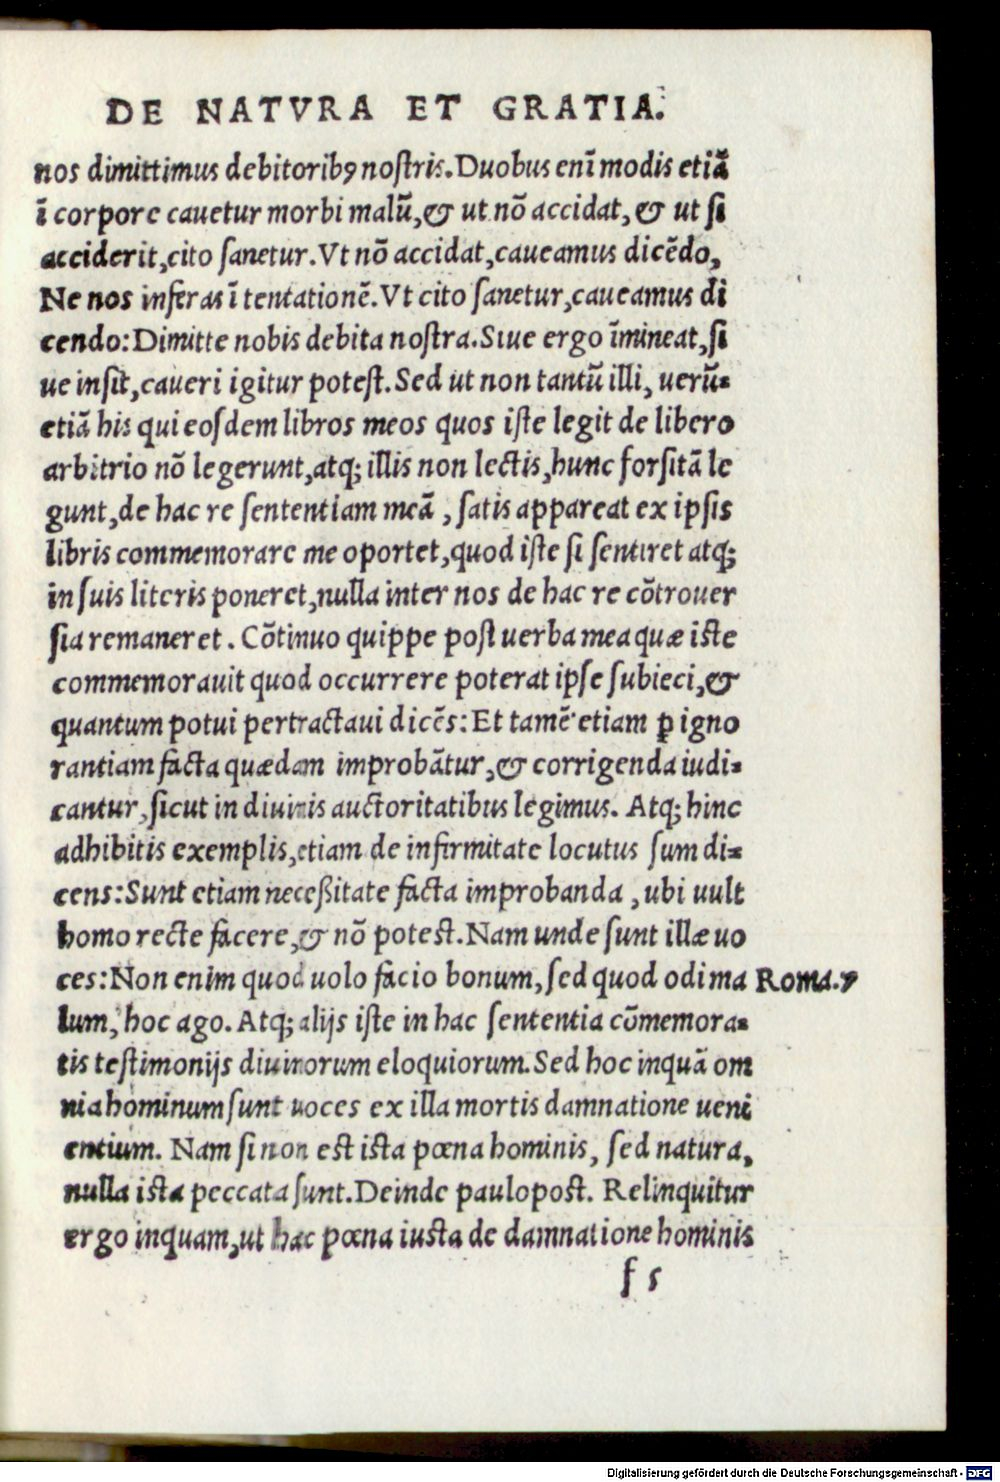 DE NATVRA ET GRATIA.
nos dimittimus debitorib9 noſtris. Duobus enī modis etiā
ī corpore cauetur morbi malū, & ut nō accidat, & ut ſi
acciderit, cito ſanetur. Vt nō accidat, caueamus dicēdo,
Ne nos inferas ī tentationē. Vt cito ſanetur, caueamus di
cendo: Dimitte nobis debita noſtra. Siue ergo īmineat, ſi
ue inſit, caueri igitur poteſt. Sed ut non tantū illi, uerū-
etiā his qui eoſdem libros meos quos iſte legit de libero
arbitrio nō legerunt, atq; illis non lectis, hunc forſitā le
gunt, de hac re ſententiam meā, ſatis appareat ex ipſis
libris commemorare me oportet, quod iſte ſi ſentiret atq;
in ſuis literis poneret, nulla inter nos de hac re cōtrouer
ſia remaneret. Cōtinuo quippe poſt uerba mea quæ iſte
commemorauit quod occurrere poterat ipſe ſubieci, &
quantum potui pertractaui dicēs: Et tamē etiam ꝑ igno
rantiam facta quædam improbātur, & corrigenda iudi-
cantur, ſicut in diuinis auctoritatibus legimus. Atq; hinc
adhibitis exemplis, etiam de infirmitate locutus ſum di-
cens: Sunt etiam neceßitate facta improbanda, ubi uult
homo recte facere, & nō poteſt. Nam unde ſunt illæ uo
ces: Non enim quod uolo facio bonum, ſed quod odi ma Roma. 7
lum, hoc ago. Atq; alijs iſte in hac ſententia cōmemora-
tis teſtimonijs diuinorum eloquiorum. Sed hoc inquā om
nia hominum ſunt uoces ex illa mortis damnatione ueni
entium. Nam ſi non eſt iſta pœna hominis, ſed natura,
nulla iſta peccata ſunt. Deinde paulopoſt. Relinquitur
ergo inquam, ut hac pœna iuſta de damnatione hominis
f 5
Digitalisierung gefördert durch die Deutsche Forschungsgemeinschaft - DFG